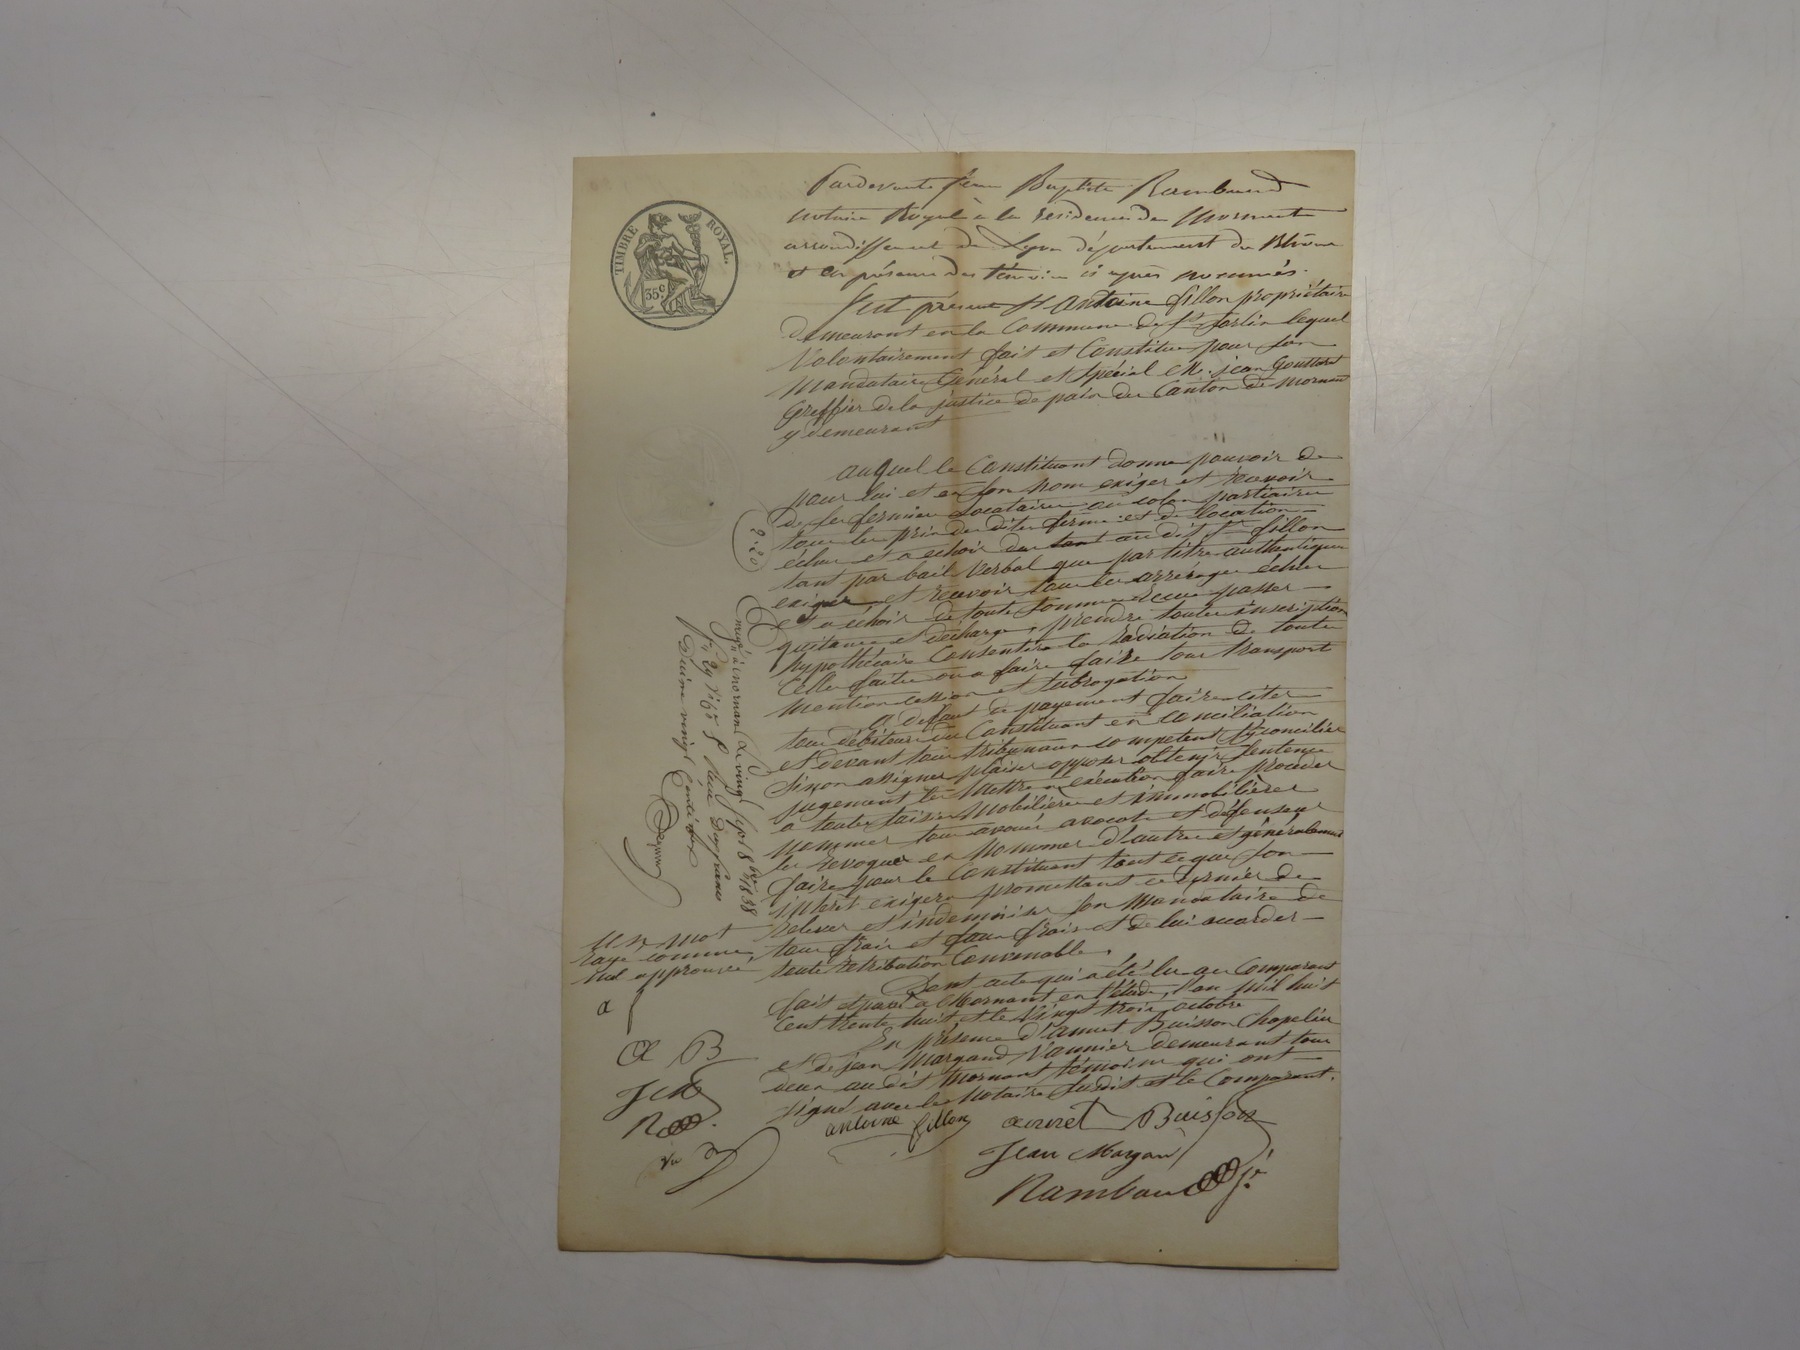 TIMBRE ROYAL.
35c
Pardevant Jean Baptiste Rambaud
notaire Royal à la résidence de Mornant
arrondissement de Lyon département du Rhône
et en présence des témoins ci après nommés.
Fut présent Sr Antoine fillon propriétaire
demeurant en la Commune de St Sorlin lequel
Volontairement fait et Constitue pour son
Mandataire Général et Spécial Mr. jean Gouttard
Greffier de la justice de paix du Canton de Mornant
y demeurant
auquel le Constituant donne pouvoir de
pour lui et en son nom exiger et recevoir
de ses fermiers Locataires ou colon partiaires
tous les prix des dites fermes et de location
échus et a echoir dus tant au dit Sr fillon
tant par bail Verbal que par titre authentique
exiger, et recevoir tous les arrérages échus
et a echoir de toute somme Recue passer
quittance et décharge, prendre toutes inscription
hypothécaire Consentire la radiation de toute
Celles faites ou a faire faire tous transport
Mention cession et subrogation
A defaut de payement faire citer
tous débiteurs du Constituant en conciliation
et devant tous tribunaux competent s'y concilier
Sinon assigner plaider opposer obtenir Sentence
jugement les Mettre a exécution faire proceder
a toutes saisies Mobilieres et immobilières
nommer tous avoués avocats et défenseurs
les revoquer en Nommer d'autre et généralement
faire pour le Constituant tout ce que son
intérêt exigera promettant ce dernier de
relever et indemniser son Mandataire de
tous frais et faux frais et de lui accorder
toute retribution Convenable.
Dont acte qui a été lu au Comparant
fait et passé a Mornant en l'étude, l'an Mil huit
Cent trente huit et le Vingt trois octobre
En présence d'annet Buisson Chapelier
et de jean Margand Vannier demeurant tous
deux au dit Mornant témoins qui ont
signé avec le Notaire susdit et le Comparant.
antoine fillon annet Buisson
Jean Margand
Rambaud
2.20
Enregé à Mornant le vingt sept 8bre 1838
fo 29 Vo 6 Reçu Deux francs
Dixième vingt centimes
Un mot
rayé comme
nul approuvé
a f
a B